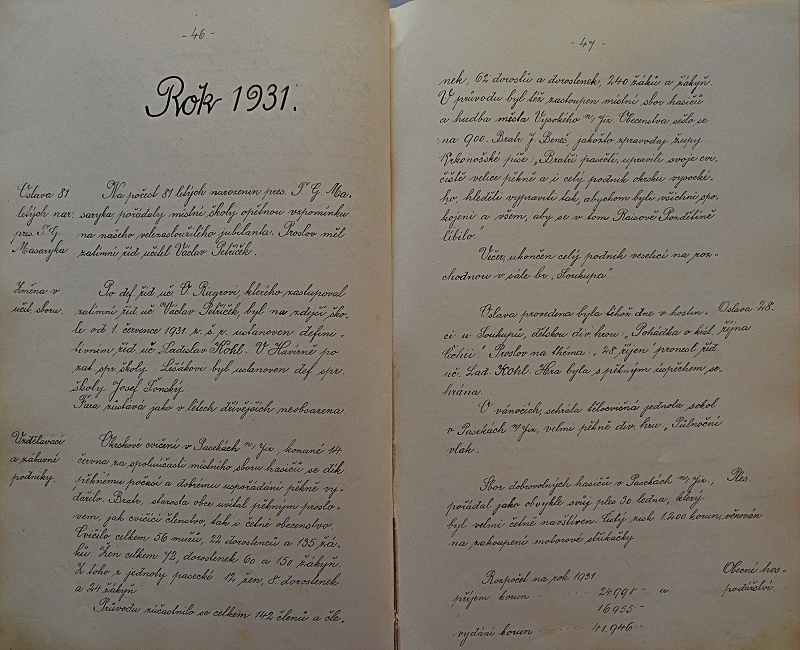 - 46 -
Rok 1931.
Oslava 81
letých nar.
pres. T. G.
Masaryka.
Na počest 81 letých narozenin pres. T. G. Ma-
saryka pořádaly místní školy opětnou vzpomínku
na našeho velezasloužilého jubilanta. Proslov měl
zatímní říd. učitel Václav Petříček.
Změna v
učit. sboru.
Po def. říd. uč. O. Rugrovi, kterého zastupoval
zatímní říd. uč. Václav Petříček, byl na zdejší ško-
le od 1. července 1931 z. š. r. ustanoven defini-
tivním říd. uč. Ladislav Köhl. V Havírně po
zat. spr. školy Lešákovi byl ustanoven def. spr.
školy Josef Tónský.
Fara zůstává jako v letech dřívějších neobsazena.
Vzdělávací
a zábavné
podniky.
Okrskové cvičení v Pasekách n/Jiz., konané 14.
června za spoluúčasti místního sboru hasičů se dík
pěknému počasí a dobrému uspořádání pěkně vy-
dařilo. Bratr, starosta obce uvítal pěkným proslo-
vem, jak cvičící členstvo, tak i četné obecenstvo.
Cvičilo celkem 56 mužů, 22 dorostenců a 135 žá-
ků. Žen celkem 72, dorostenek 60 a 150 žákyň.
Z toho z jednoty pasecké 12 žen, 8 dorostenek
a 24 žákyň.
Průvodu zúčastnilo se celkem 142 členů a čle-
- 47 -
nek, 62 dorostů a dorostenek, 240 žáků a žákyň.
V průvodu byl též zastoupen místní sbor hasičů
a hudba města Vysokého n/Jiz. Obecenstva sešlo se
na 900. Bratr J. Beneš, jakožto zpravodaj župy
Krkonošské píše: „Bratři pasečtí, upravili svoje cvi-
čiště velice pěkně a i celý podnik okrsku vysocké-
ho, hleděli vypraviti tak, abychom byli všichni spo-
kojeni a všem, aby se v tom Raisově Pozdětíně
líbilo."
Večer, ukončen celý podnik veselicí na roz-
chodnou v sále br. „Soukupa".
Oslava provedena byla téhož dne v hostin-
ci u Soukupů, dětskou div. hrou „Pohádka o král.
Čchiii". Proslov na théma: „28 říjen" pronesl říd.
uč. Lad. Köhl. Hra byla s pěkným úspěchem se-
hrána.
Oslava 28.
října
O vánocích, sehrála tělocvičná jednota sokol
v Pasekách n/Jiz. velmi pěkně div. hru „Půlnoční
vlak".
Sbor dobrovolných hasičů v Pasekách n/Jiz.,
pořádal jako obvykle svůj ples 30 ledna, který
byl velmi četně navštíven. Čistý zisk 1.200 korun, věnován
na zakoupení motorové stříkačky.
Ples.
Rozpočet na rok 1931.
příjem korun 24.991 - a
16.955 -
vydání korun 41.946 -
Obecní hos-
podářství.